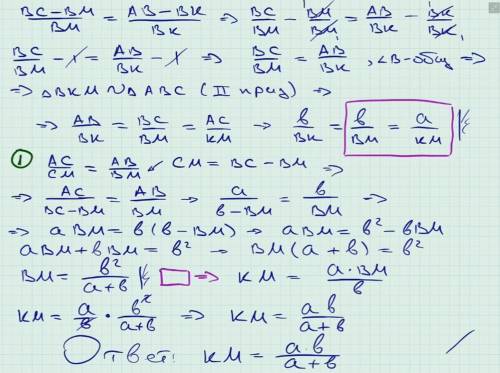 BC-BM/BM = AB-BK/BK => BC/BM - BM/BM = AB/BK - BK/BK
BC/BM - 1 = AB/BK - 1 => BC/BM = AB/BK, ∠B-общ =>
=> △BKM ∾ △ABC (II приз) =>
=> AB/BK = BC/BM = AC/KM => b/BK = b/BM = a/KM
① AC/CM = AB/BM ↙ CM = BC - BM =>
=> AC/BC-BM = AB/BM => a/b-BM = b/BM =>
=> aBM = b(b-BM) → aBM = b²-bBM
aBM+bBM = b² → BM(a+b) = b²
BM = b²/a+b □ => KM = a·BM/b
KM = a/b · b²/a+b => KM = ab/a+b
Ответ: KM = a·b/a+b